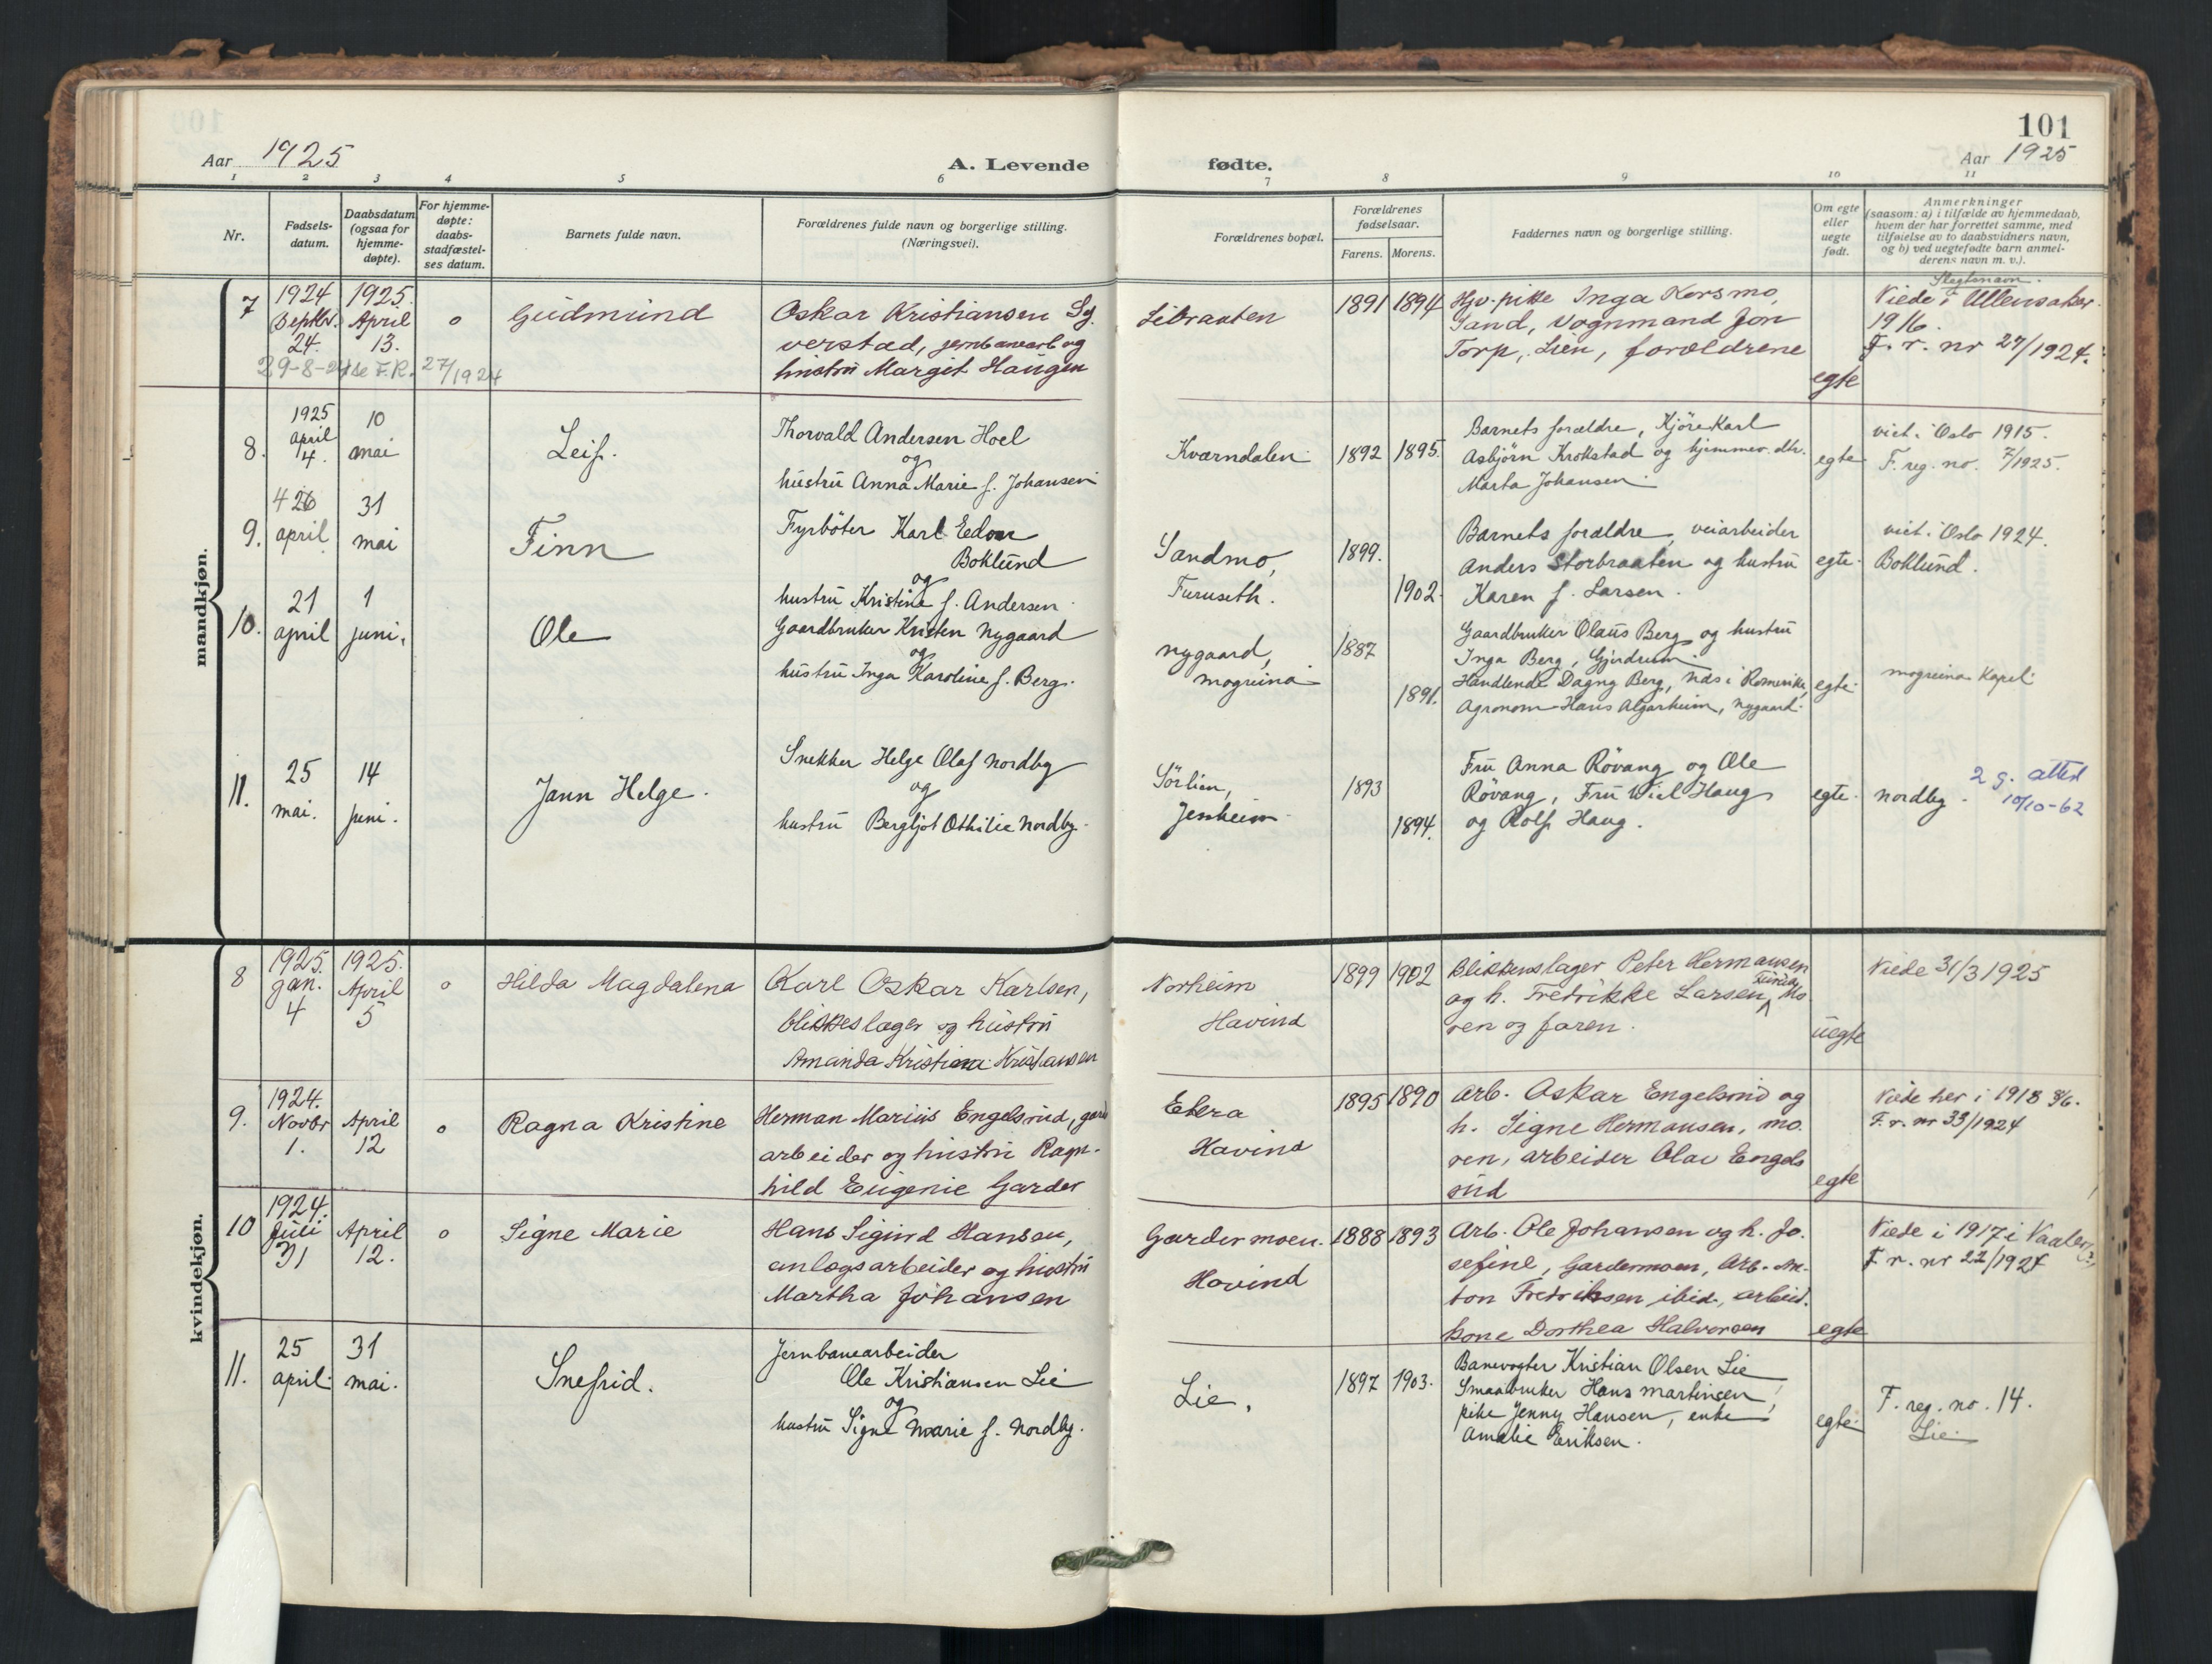 101
Aar 1925
A. Levende fødte.
Aar 1925
1 2 3 4 5 6 7 8 9 10 11
Nr.
Fødsels-
datum.
Daabsdatum
(ogsaa for
hjemme-
døpte).
For hjemme-
døpte:
daabs-
stadfæstel-
ses datum.
Barnets fulde navn.
Forældrenes fulde navn og borgerlige stilling.
(Næringsvei).
Forældrenes bopæl.
Forældrenes
fødselsaar.
Farens. Morens.
Faddernes navn og borgerlige stilling.
Om egte
eller
uegte
født.
Anmerkninger
(saasom: a) i tilfælde av hjemmedaab,
hvem der har forrettet samme, med
tilføielse av to daabsvidners navn,
og b) ved uegtefødte barn anmel-
derens navn m. v.).
Slegtsnavn.
mandkjøn.
7
1924
Septbr.
24.
29-8-24 se F.R. 27/1924
1925.
April
13.
o
Gudmund
Oskar Kristiansen Sy.
verstad, jernbanearb og
hustru Margit Haugen
Libraaten
1891 1894
Hjv. pike Inga Korsmo,
Sand, Vognmand Jon
Torp, Lien, forældrene
egte
Viede i Ullensaker
1916.
F. r. nr 27/1924.
8.
1925
april
4.
10
mai
Leif.
Thorvald Andersen Hoel
og
hustru Anna Marie f. Johansen
Kværndalen
1892 1895.
Barnets forældre, Kjørekarl
Asbjørn Krokstad og hjemmev. dtr.
Marta Johansen
egte
viet i Oslo 1915.
F. reg. no. 7/1925.
9.
26
april
31
mai
Finn
Fyrbøter Karl Edor
Boklund
og
hustru Kristine f. Andersen
Sandmo,
Furuseth.
1899.
1902.
Barnets forældre, veiarbeider
Anders Storbraaten og hustru
Karen f. Larsen.
egte
viet i Oslo 1924.
Boklund.
10.
21
april
1
juni.
Ole
Gaardbruker Kristen Nygaard
og
hustru Inga Karoline f. Berg.
Nygaard,
Mogreina
1887
1891.
Gaardbruker Olaus Berg og hustru
Inga Berg, Gjerdrum
Handlende Dagny Berg, Næs i Romerike,
Agronom Hans Algarheim, Nygaard.
egte
Mogreina Kapel
11.
25
mai.
14
juni.
Jann Helge.
Snekker Helge Olaf Nordby
og
hustru Bergljot Othilie Nordby.
Sørlien,
Jessheim
1893
1894.
Fru Anna Røvang og Ole
Røvang, Fru Wiel Haug
og Rolf Haug.
egte
Nordby
2 g. attest
10/10-62
kvindekjøn.
8
1925.
Jan.
4
1925.
April
5
o
Hilda Magdalena
Karl Oskar Karlsen,
blikkeslager og hustru
Amanda Kristine Kristiansen
Norheim
Hovind
1899 1902
Blikkenslager Peter Hermansen
og h. Fredrikke Larsen, Mo
ren og faren.
uegte
Viede 31/3 1925
9.
1924.
Novbr
1.
April
12
o
Ragna Kristine
Herman Marius Engelsrud, gards
arbeider og hustru Ragn-
hild Eugenie Garder
Elvra
Hovind
1895 1890
Arb. Oskar Engelsrud og
h. Signe Hermansen, mo.
ren, arbeider Olav Engels
rud
egte
Viede her i 1918
F. r. nr 33/1924
10
1924.
Juli
31
April
12.
o
Signe Marie
Hans Sigurd Hansen,
anlægsarbeider og hustru
Martha Johansen
Gardermoen.
Hovind
1888 1893
Arb. Ole Johansen og h. Jo.
sefine, Gardermoen, Arb. An-
ton Fredriksen ibid, arbeid.
kone Dorthea Halvorsen
egte
Viede i 1917 i Vaaler
F. r. nr 22/1924
11.
25
april.
31
mai.
Snefrid.
Jernbanearbeider
Ole Kristiansen Lie
og
hustru Signe Marie f. Nordby.
Lie.
1897 1903.
Banevogter Kristian Olsen Lie
Smaabruker Hans Martinsen,
pike Jenny Hansen, enke
Amalie Eriksen.
egte
F. reg. no. 14.
Lie